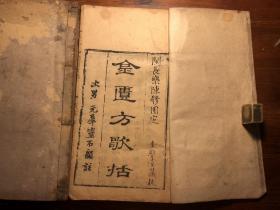 閩長樂陳修園定
金匱方歌括
次男 元犀靈石韻註